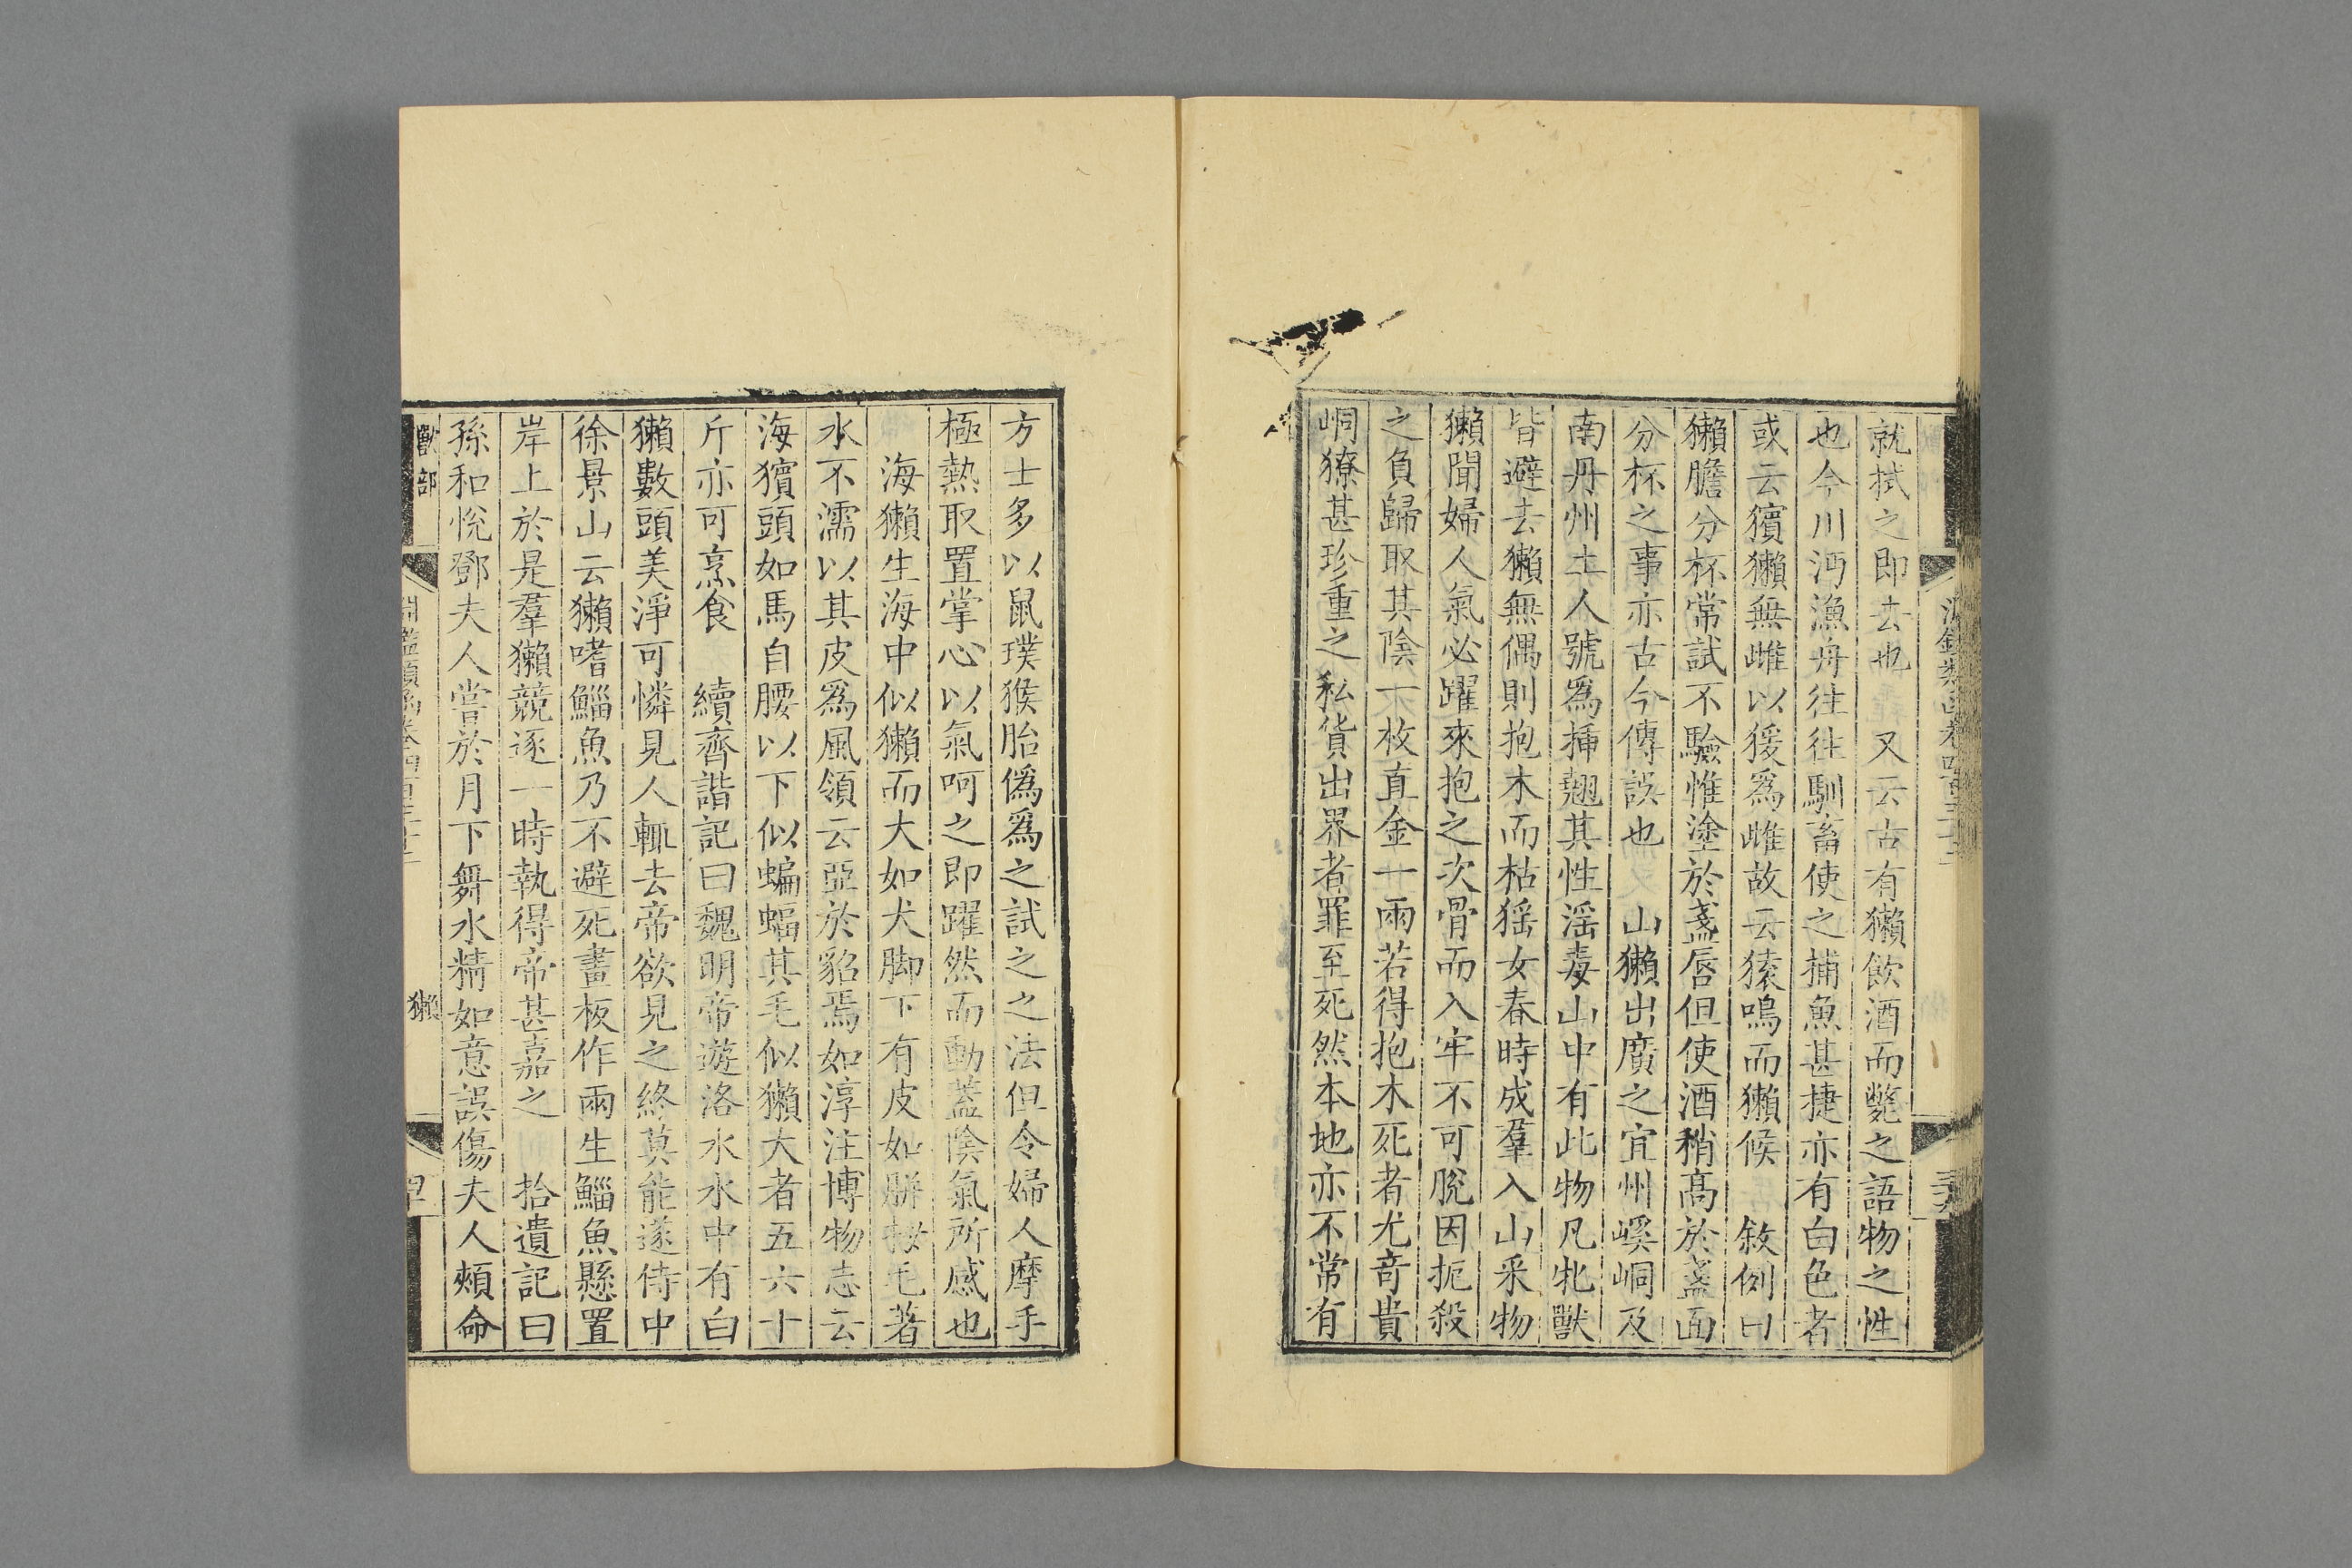 就拭之即去也 又云古有獺飲酒而斃之語物之性
也今川沔漁舟往往馴畜使之捕魚甚捷亦有白色者
或云獱獺無雌以猨爲雌故云猿鳴而獺候 敘例曰
獺膽分杯常試不驗惟塗於盞唇但使酒稍髙於盞面
分杯之事亦古今傳誤也 山獺出廣之宜州嵠峒及
南丹州土人號爲揷翹其性滛毒山中有此物凡牝獸
皆避去獺無偶則抱木而枯猺女春時成羣入山采物
獺聞婦人氣必躍來抱之次骨而入牢不可脫因扼殺
之負歸取其陰一枚直金一兩若得抱木死者尤竒貴
峒獠甚珍重之私貨出界者罪至死然本地亦不常有
方士多以鼠璞猴胎僞爲之試之之法但令婦人摩手
極熱取置掌心以氣呵之即躍然而動蓋陰氣所感也
海獺生海中似獺而大如犬脚下有皮如胼拇毛著
水不濡以其皮爲風領云亞於貂焉如淳注博物志云
海獱頭如馬自腰以下似蝙蝠其毛似獺大者五六十
斤亦可烹食 續齊諧記曰魏明帝遊洛水水中有白
獺數頭美淨可憐見人輒去帝欲見之終莫能遂侍中
徐景山云獺嗜鯔魚乃不避死畫板作兩生鯔魚懸置
岸上於是羣獺競逐一時執得帝甚嘉之 拾遺記曰
孫和悅鄧夫人嘗於月下舞水精如意誤傷夫人頰命
獸部
獺